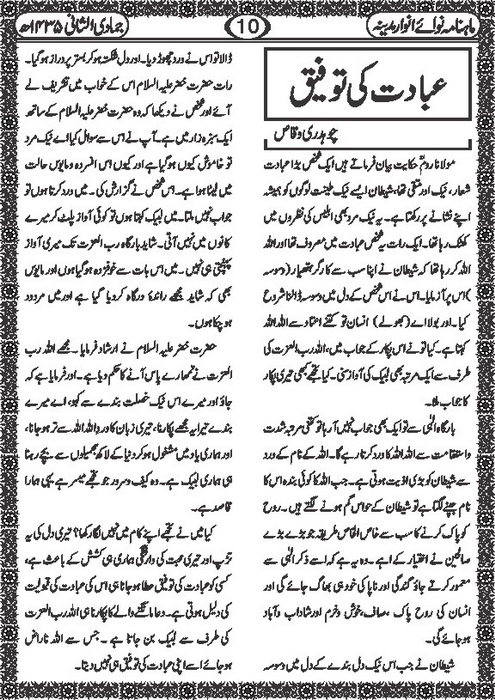 ماہنامہ نوائے انوار مدینہ
10
جمادی الثانی ۱۴۳۵ھ
عبادت کی توفیق
چوہدری وقاص
مولانا روم حکایت بیان فرماتے ہیں ایک شخص بڑا عبادت
شعار، نیک اور متقی تھا، شیطان ایسے نیک طینت لوگوں کو ہمیشہ
اپنے نشانے پر رکھتا ہے۔ یہ نیک مرد بھی ابلیس کی نظروں میں
کھٹک رہا تھا۔ ایک رات یہ شخص عبادت میں مصروف تھا اور اللہ
اللہ کر رہا تھا کہ شیطان نے اپنا سب سے کارگر ہتھیار (وسوسہ
)اس پر آزمایا۔ اس نے اس شخص کے دل میں وسوسہ ڈالنا شروع
کیا۔ اور بولا اے (بھولے) انسان تو کتنے اعتماد سے اللہ اللہ
کہتا ہے۔ کیا تو نے اس پکار کے جواب میں، اللہ رب العزت کی
طرف سے ایک مرتبہ بھی لبیک کی آواز سنی۔ کیا تجھے کبھی تیری پکار
کا جواب ملا۔
بارگاہ الٰہی سے تو ایک بھی جواب نہیں آ رہا تو کتنی مرتبہ شدت
واستقامت سے اللہ اللہ کا ورد کرتا رہے گا۔ اللہ کے نام کے ورد
سے شیطان کو بڑی اذیت ہوتی ہے۔ جب اللہ کا کوئی بندہ اس کا
نام جپنے لگتا ہے تو شیطان کے حواس گم ہونے لگتے ہیں۔ روح
کو پاک کرنے کا سب سے خاص الخاص طریقہ جو بڑے بڑے
صالحین نے اختیار کیے اے۔ وہ یہ ہے کہ اسے ذکر الٰہی سے
معمور کرتے جاؤ گندگی اور ناپاکی خود ہی بھاگ جائے گی اور
انسان کی روح پاک ،صاف، خوش وخرم اور شاداب وآباد
ہو جائے گی۔
شیطان نے جب اس نیک دل بندے کے دل میں وسوسہ
ڈالا تو اس نے ورد چھوڑ دیا۔ اور دل شکستہ ہو کر بستر پر دراز ہو گیا۔
رات حضرت خضر علیہ السلام اس کے خواب میں تشریف لے
آئے اور شخص نے دیکھا کہ وہ حضرت خضر علیہ السلام کے ساتھ
ایک سبزہ زار میں ہے۔ آپ نے اس سے سوال کیا اے نیک مرد
تو خاموش کیوں ہو گیا ہے اور کیوں اس افسردہ ومایوس حالت
میں لیٹا ہوا ہے۔ اس شخص نے گزارش کی۔ میں ورد کرتا ہوں تو
جواب نہیں ملتا۔ میں لبیک کہتا ہوں تو کوئی آواز پلٹ کر میرے
کانوں میں نہیں آتی۔ شاید بارگاہ رب العزت تک میری آواز
پہنچتی ہی نہیں۔ میں اس بات سے خوفزدہ ہو گیا ہوں اور مایوس
بھی کہ شاید مجھے راندۂ درگاہ کر دیا گیا ہے اور میں مردود
ہو چکا ہوں۔
حضرت خضر علیہ السلام نے ارشاد فرمایا۔ مجھے اللہ رب
العزت نے تمھارے پاس آنے کا حکم دیا ہے۔ اور فرمایا ہے کہ
جاؤ اور میرے اس نیک خصلت بندے سے کہو، اے میرے
بندے تیرا یہ مجھے پکارنا، تیری زبان کا ورد اللہ اللہ سے تر ہو جانا،
اور ہماری یاد میں مشغول ہو کر دنیا کے لاکھ جھمیلوں سے بچے رہنا
ہی ہماری لبیک ہے۔ وہ کیف وسرور جو تجھے میسر ہے یہی ہمارا
قاصد ہے۔
کیا میں نے تجھے اپنے کام میں نہیں لگا رکھا؟ تیری دل کی یہ
تڑپ اور تیری محبت کی وارفتگی ہماری ہی کشش کے باعث ہے،
کسی کو عبادت کی توفیق عطا ہو جانا ہی اس کی عبادت کی قبولیت
کی دلیل ہوتی ہے۔ دعا مانگنے والے کا پکارنا ہی اللہ رب العزت
کی طرف سے لبیک بن جاتا ہے۔ جس سے اللہ ناراض
ہو جائے اسے اپنی عبادت کی توفیق ہی نہیں دیتا۔